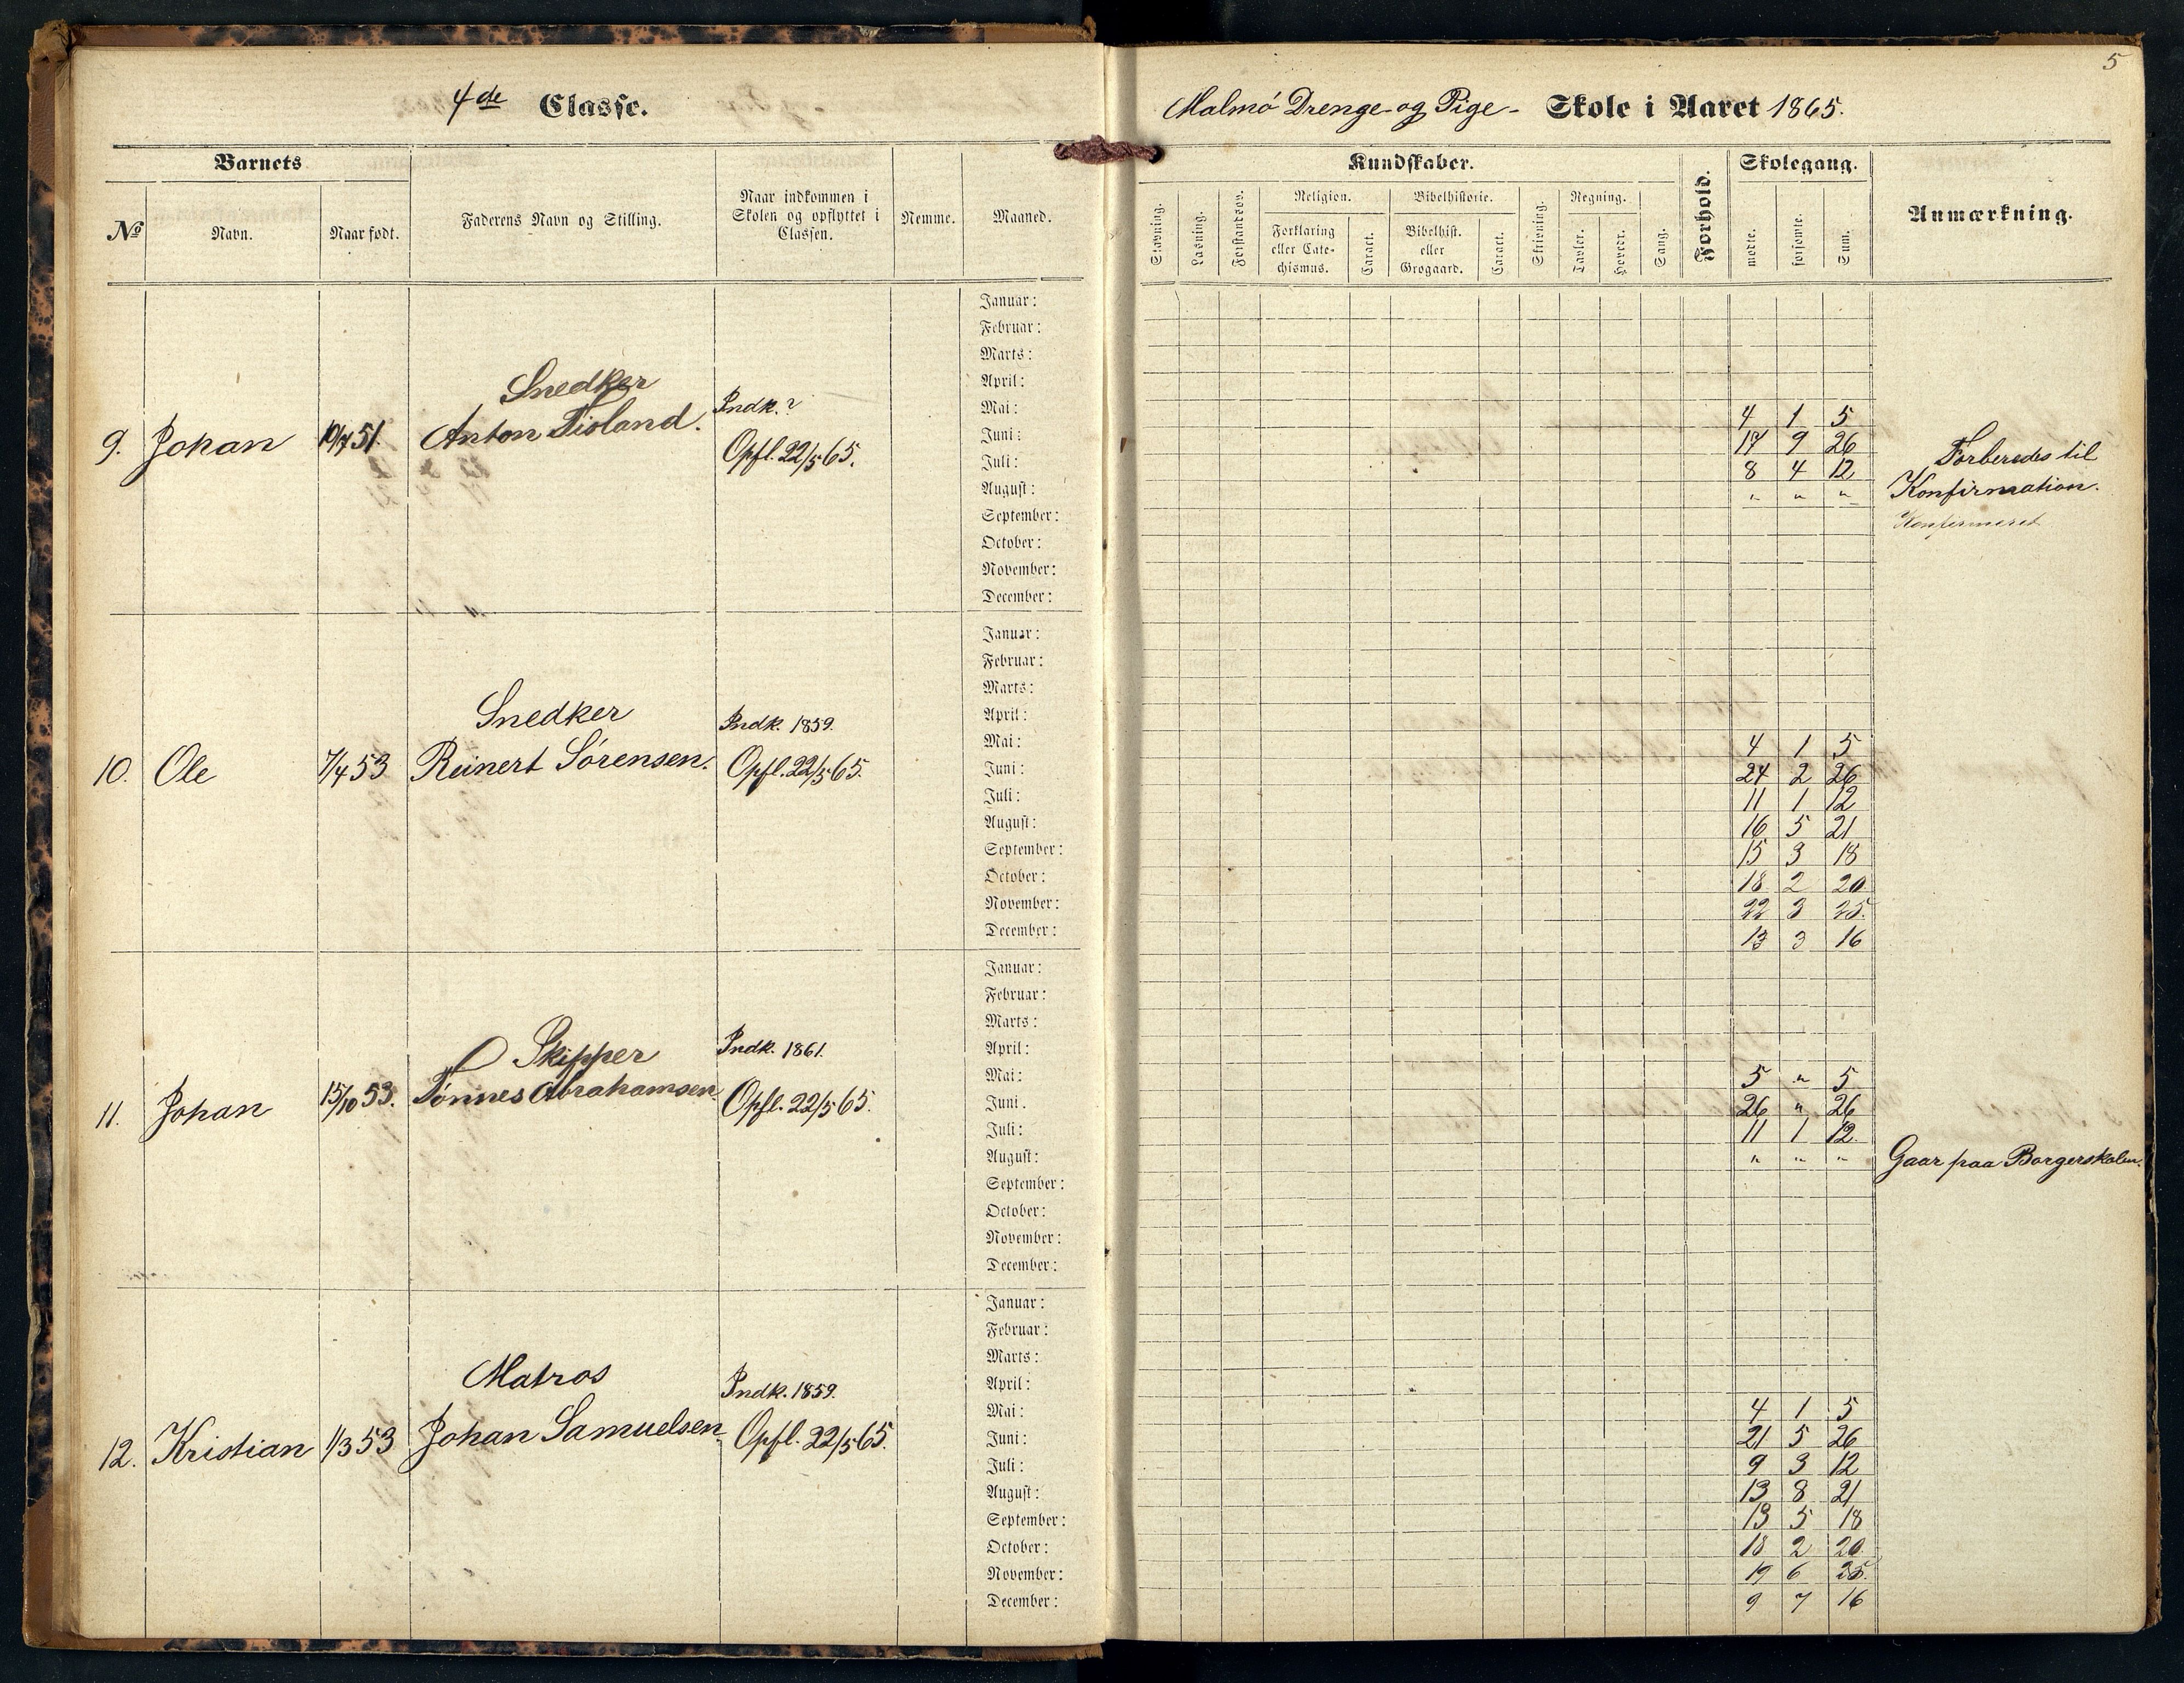 5
4de Classe.
Malmö Drenge- og Pige- Skole i Aaret 1865.
Barnets
Kundskaber.
Skolegang.
No
Navn.
Naar født.
Faderens Navn og Stilling.
Naar indkommen i
Skolen og opflyttet i
Classen.
Nemme.
Maaned.
Stavning.
Læsning.
Forstandsøv.
Religion.
Forklaring
eller Cate-
chismus.
Caract.
Bibelhistorie.
Bibelhist.
eller
Grøgaard.
Caract.
Skrivning.
Regning.
Tavler.
Hovedr.
Sang.
Forhold.
mødte.
forsømte.
Sum.
Anmærkning.
Januar:
Februar:
Marts:
Snedker
April:
Indk. ?
Mai: 4 1 5
9. Johan 10/7 51. Anton Fioland. Opfl. 22/5 65.
Juni: 17 9 26
Forberedes til
Juli: 8 4 12
Konfirmation.
August: " " "
Konfirmeret
September:
October:
November:
December:
Januar:
Februar:
Marts:
Snedker
April:
Indk. 1859.
Mai: 4 1 5
10. Ole 7/4 53 Reinert Sörensen. Opfl. 22/5 65.
Juni: 24 2 26
Juli: 11 1 12
August: 16 5 21
September: 15 3 18
October: 18 2 20
November: 22 3 25.
December: 13 3 16
Januar:
Februar:
Marts:
Skipper
Indk. 1861.
April:
Mai: 5 " 5
11. Johan 15/10 53. Tönnes Abrahamsen Opfl. 22/5 65.
Juni. 26 " 26
Juli: 11 1 12.
August: " " " Gaar paa Borgerskolen.
September:
October:
November:
December:
Januar:
Februar:
Marts:
Matros
Indk. 1859.
April:
Mai: 4 1 5
12. Kristian 1/3 53 Johan Samuelsen. Opfl. 22/5 65.
Juni: 21 5 26
Juli: 9 3 12
August: 13 8 21
September: 13 5 18
October: 18 2 20.
November: 19 6 25.
December: 9 7 16